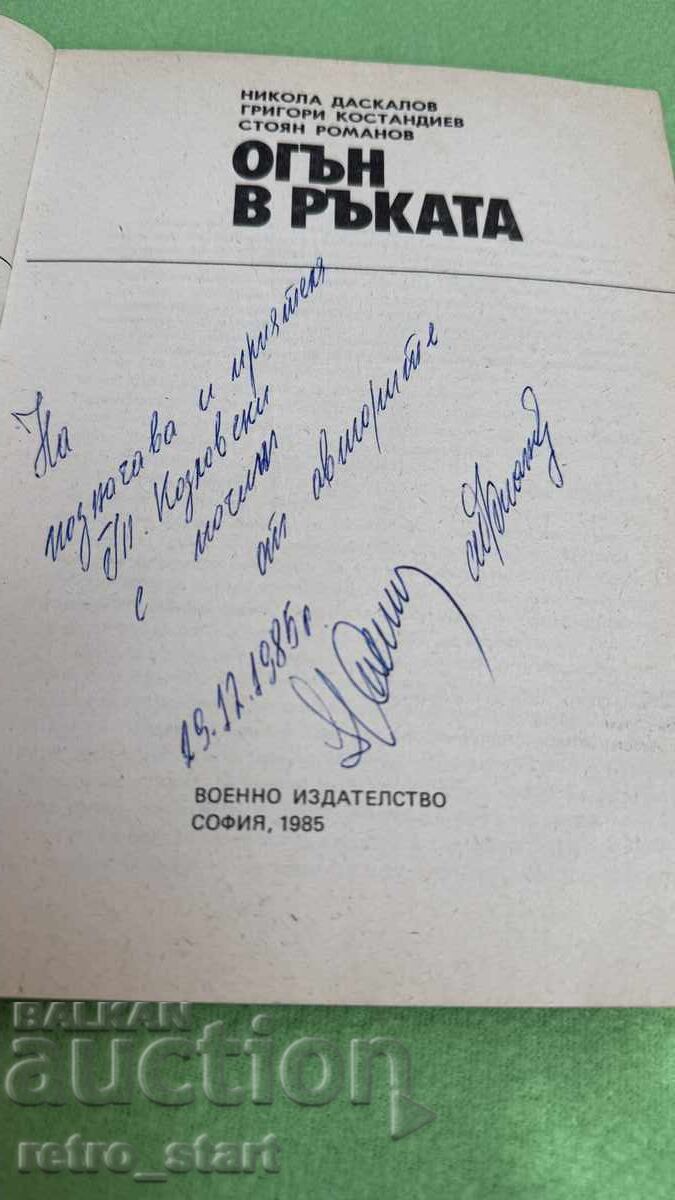 НИКОЛА ДАСКАЛОВ
ГРИГОРИ КОСТАНДИЕВ
СТОЯН РОМАНОВ
ОГЪН
В РЪКАТА
На
познача ва и приятеля
Козловски
с почит
от авторите
19.12.1985 г.
ВОЕННО ИЗДАТЕЛСТВО
СОФИЯ, 1985
BALKAN
auction
retro_start